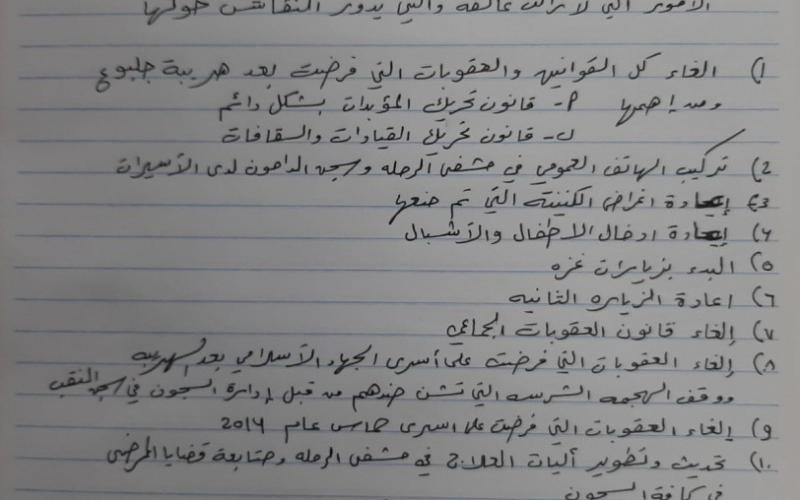 الأمور التي لا زالت عالقة والتي يدور النقاش حولها
١) الغاء كل القوانين والعقوبات التي فرضت بعد هريبة جلبوع
ومن اهمها أ- قانون تحريك المؤبدات بشكل دائم
ب- قانون تحريك القيادات والسقافات
2) تركيب الهاتف العمومي في مشفى الرمله وسجن الدامون لدى الأسيرات
3) إعادة اغراض الكنتينه التي تم منعها
٤) إعادة ادخال الاطفال والأشبال
٥) البدء بزيارات غزه
٦) اعادة الزياره الثانيه
٧) إلغاء قانون العقوبات الجماعي
٨) إلغاء العقوبات التي فرضت على أسرى الجهاد الاسلامي بعد الهريبه
ووقف الهجمه الشرسه التي تشن ضدهم من قبل إدارة السجون في سجن النقب
٩) إلغاء العقوبات التي فرضت على اسرى حماس عام 2014
١٠) تحديث وتطوير أليات العلاج في مشفى الرمله ومتابعة قضايا المرضى
في كافة السجون